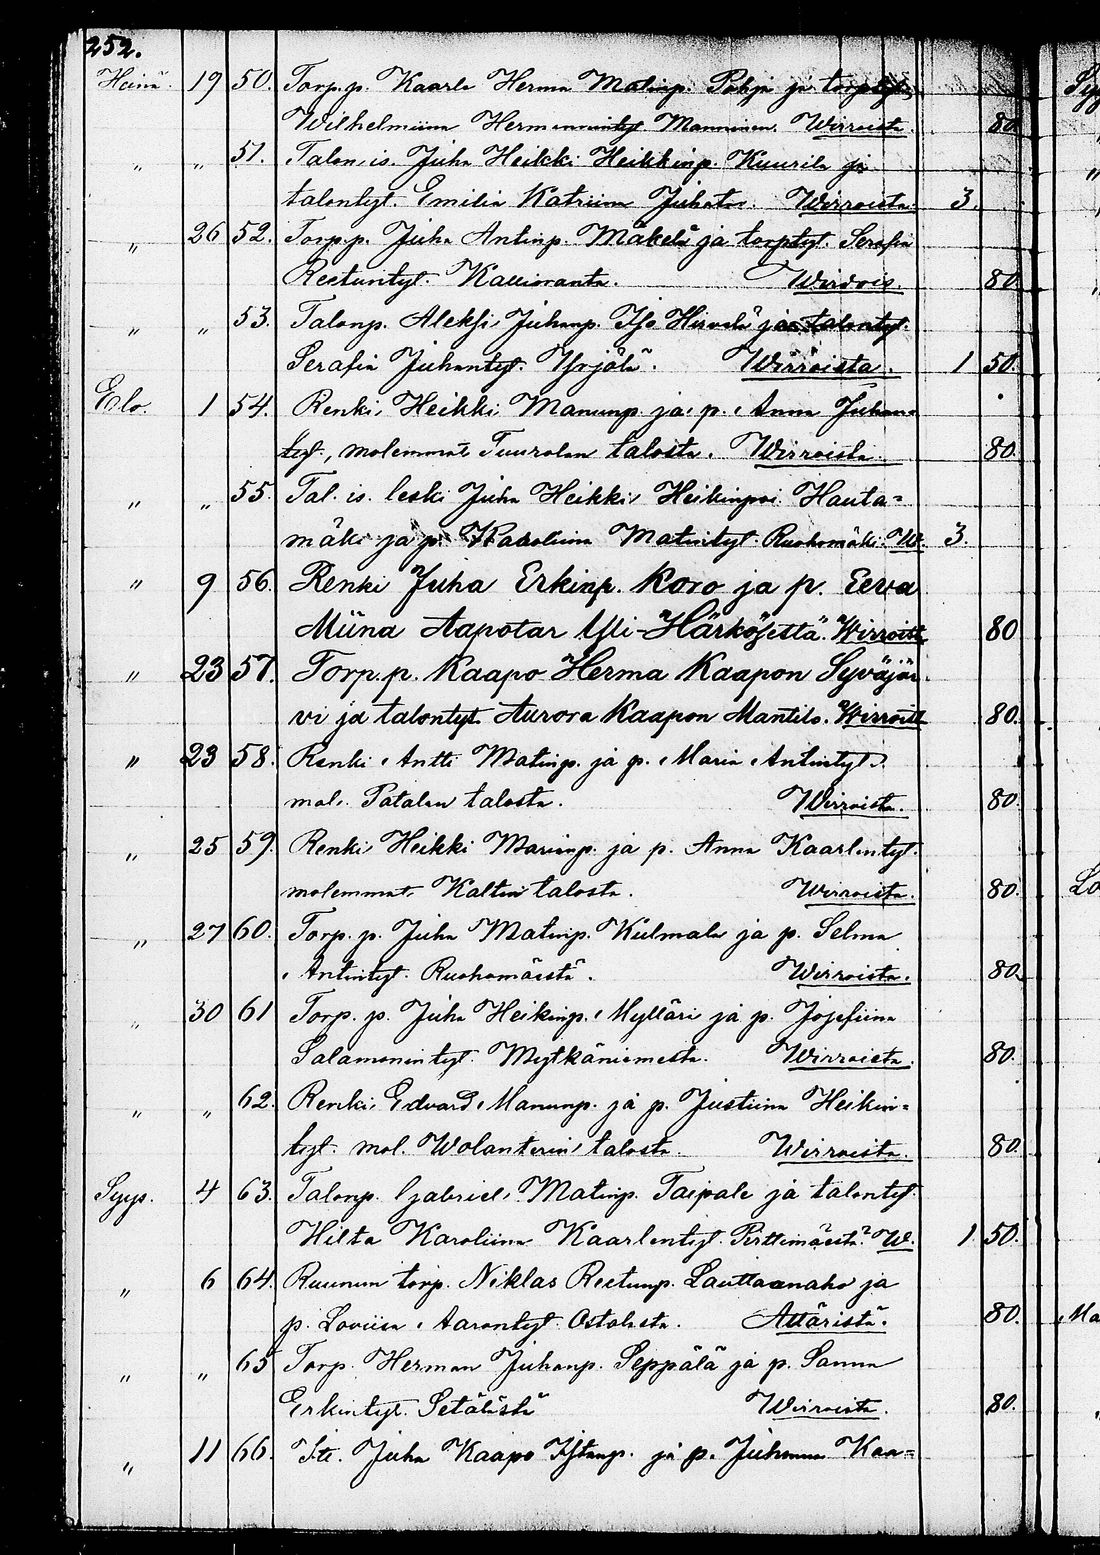 252.
Heinä. 19 50. Torp.p. Kaarle Herma Matinp. Pohja ja torptyt.
Wilhelmiina Hermannintyt. Manninen. Wirroista. 80
„ „ 51. Talon is. Juha Heikki Heikkinp. Kuurila ja
talontyt. Emilia Katriina Juhatar. Wirroista. 3.
„ 26 52. Torp.p. Juha Antinp. Mäkelä ja torptyt. Serafia
Restuntyt. Kallioranta. Wirrois. 80
„ „ 53. Talonp. Aleksi Juhanp. Iso Hirvelä ja talontyt.
Serafia Juhantyt. Yrjölä. Wirroista. 1 50.
Elo. 1 54. Renki Heikki Manunp. ja p. Anna Juhan-
tyt, molemmat Tuurolan talosta. Wirroista. 80.
„ „ 55. Tal. is. leski Juha Heikki Heikinpoi. Hauta=
mäki ja p. Karoliina Matintyt. Ruohomäki. W. 3.
„ 9 56. Renki Juha Erkinp. Koro ja p. Eeva
Miina Aapotar Yli-Härkösestä. Wirroist. 80
„ 23 57. Torp.p. Kaapo Herma Kaapon Syväjär-
vi ja talontyt. Aurora Kaapon Mantila. Wirroist. 80.
„ 23 58. Renki Antti Matinp. ja p. Maria Antintyt.
mol. Patalan talosta. Wirroista. 80.
„ 25 59. Renki Heikki Marianp. ja p. Anna Kaarlentyt.
molemmat Kaltin talosta. Wirroista. 80.
„ 27 60. Torp. p. Juha Matinp. Kulmala ja p. Selma
Antintyt. Ruohomäestä. Wirroista. 80.
„ 30 61 Torp. p. Juha Heikinp. Mylläri ja p. Josefiina
Salamonintyt. Mytkäniemestä. Wirroista. 80.
„ „ 62. Renki Edvard Manunp. ja p. Justiina Heikin=
tyt. mol. Wolanterin talosta. Wirroista. 80.
Syys. 4 63. Talonp. Gabriel Matinp. Taipale ja talontyt.
Hilta Karoliina Kaarlentyt. Perttimäestä. W. 1 50.
„ 6 64. Ruunun torp. Niklas Restunp. Lauttaanaho ja
p. Loviisa Aarontyt. Ostolasta. Ättäristä. 80.
„ „ 65 Torp. Herman Juhanp. Seppälä ja p. Sanna
Erkintyt. Setälästä Wirroista. 80.
„ 11 66. Its. Juha Kaapo Kaa=